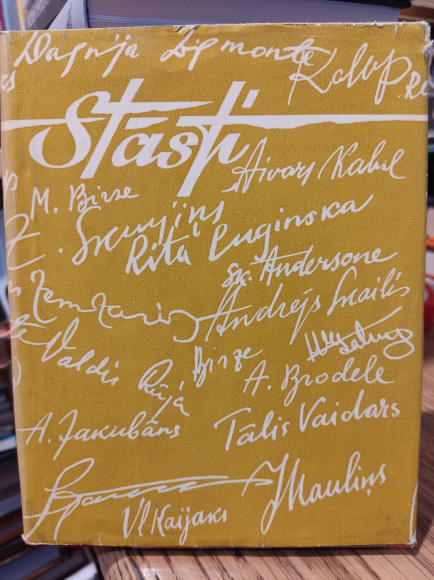 Dagnija Zigmonte
Stāsti
Aivars Kalve
M. Birze
Skujiņš
Rita Luginska
Sk. Andersone
Andrejs Skailis
Valdis Rūja
Birze
A. Brodele
A. Jakubāns
Tālis Vaidars
J Mauliņš
Vl Kaijaks